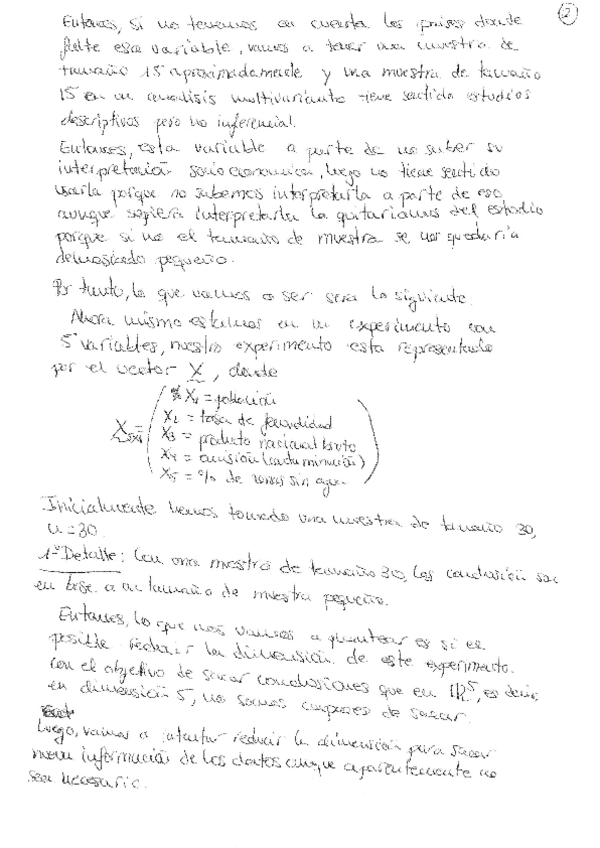 2
Entonces, si no tenemos en cuenta los países donde
falte esa variable, vamos a tener una muestra de
tamaño 15 aproximadamente y una muestra de tamaño
15 en un analisis multivariante tiene sentido estudios
descriptivos pero no inferencial.
Entonces, esta variable a parte de no saber su
interpretación socioeconomica, luego no tiene sentido
usarla porque no sabemos interpretarla a parte de eso
aunque supiera interpretarla la quitariamos del estudio
porque si no el tamaño de muestra se nos quedaría
demasiado pequeño.
Por tanto, lo que vamos a ser sera lo siguiente
Ahora mismo estamos en un experimento con
5 variables, nuestro experimento esta representado
por el vector X, donde
X₁ = población
X₂ = tasa de fecundidad
X5x1 = X₃ = producto nacional bruto
X₄ = emisión (contaminación)
X₅ = % de zonas sin agua
Inicialmente hemos tomado una muestra de tamaño 30,
n = 30
1º Detalle: Con una muestra de tamaño 30, las conclusión son
en base a un tamaño de muestra pequeño.
Entonces, lo que nos vamos a plantear es si es
posible reducir la dimensión de este experimento.
con el objetivo de sacar conclusiones que en ℝ⁵, es decir
en dimensión 5, no somos capaces de sacar.
Luego, vamos a intentar reducir la dimensión para sacar
nueva información de los datos aunque aparentemente no
sea necesario.